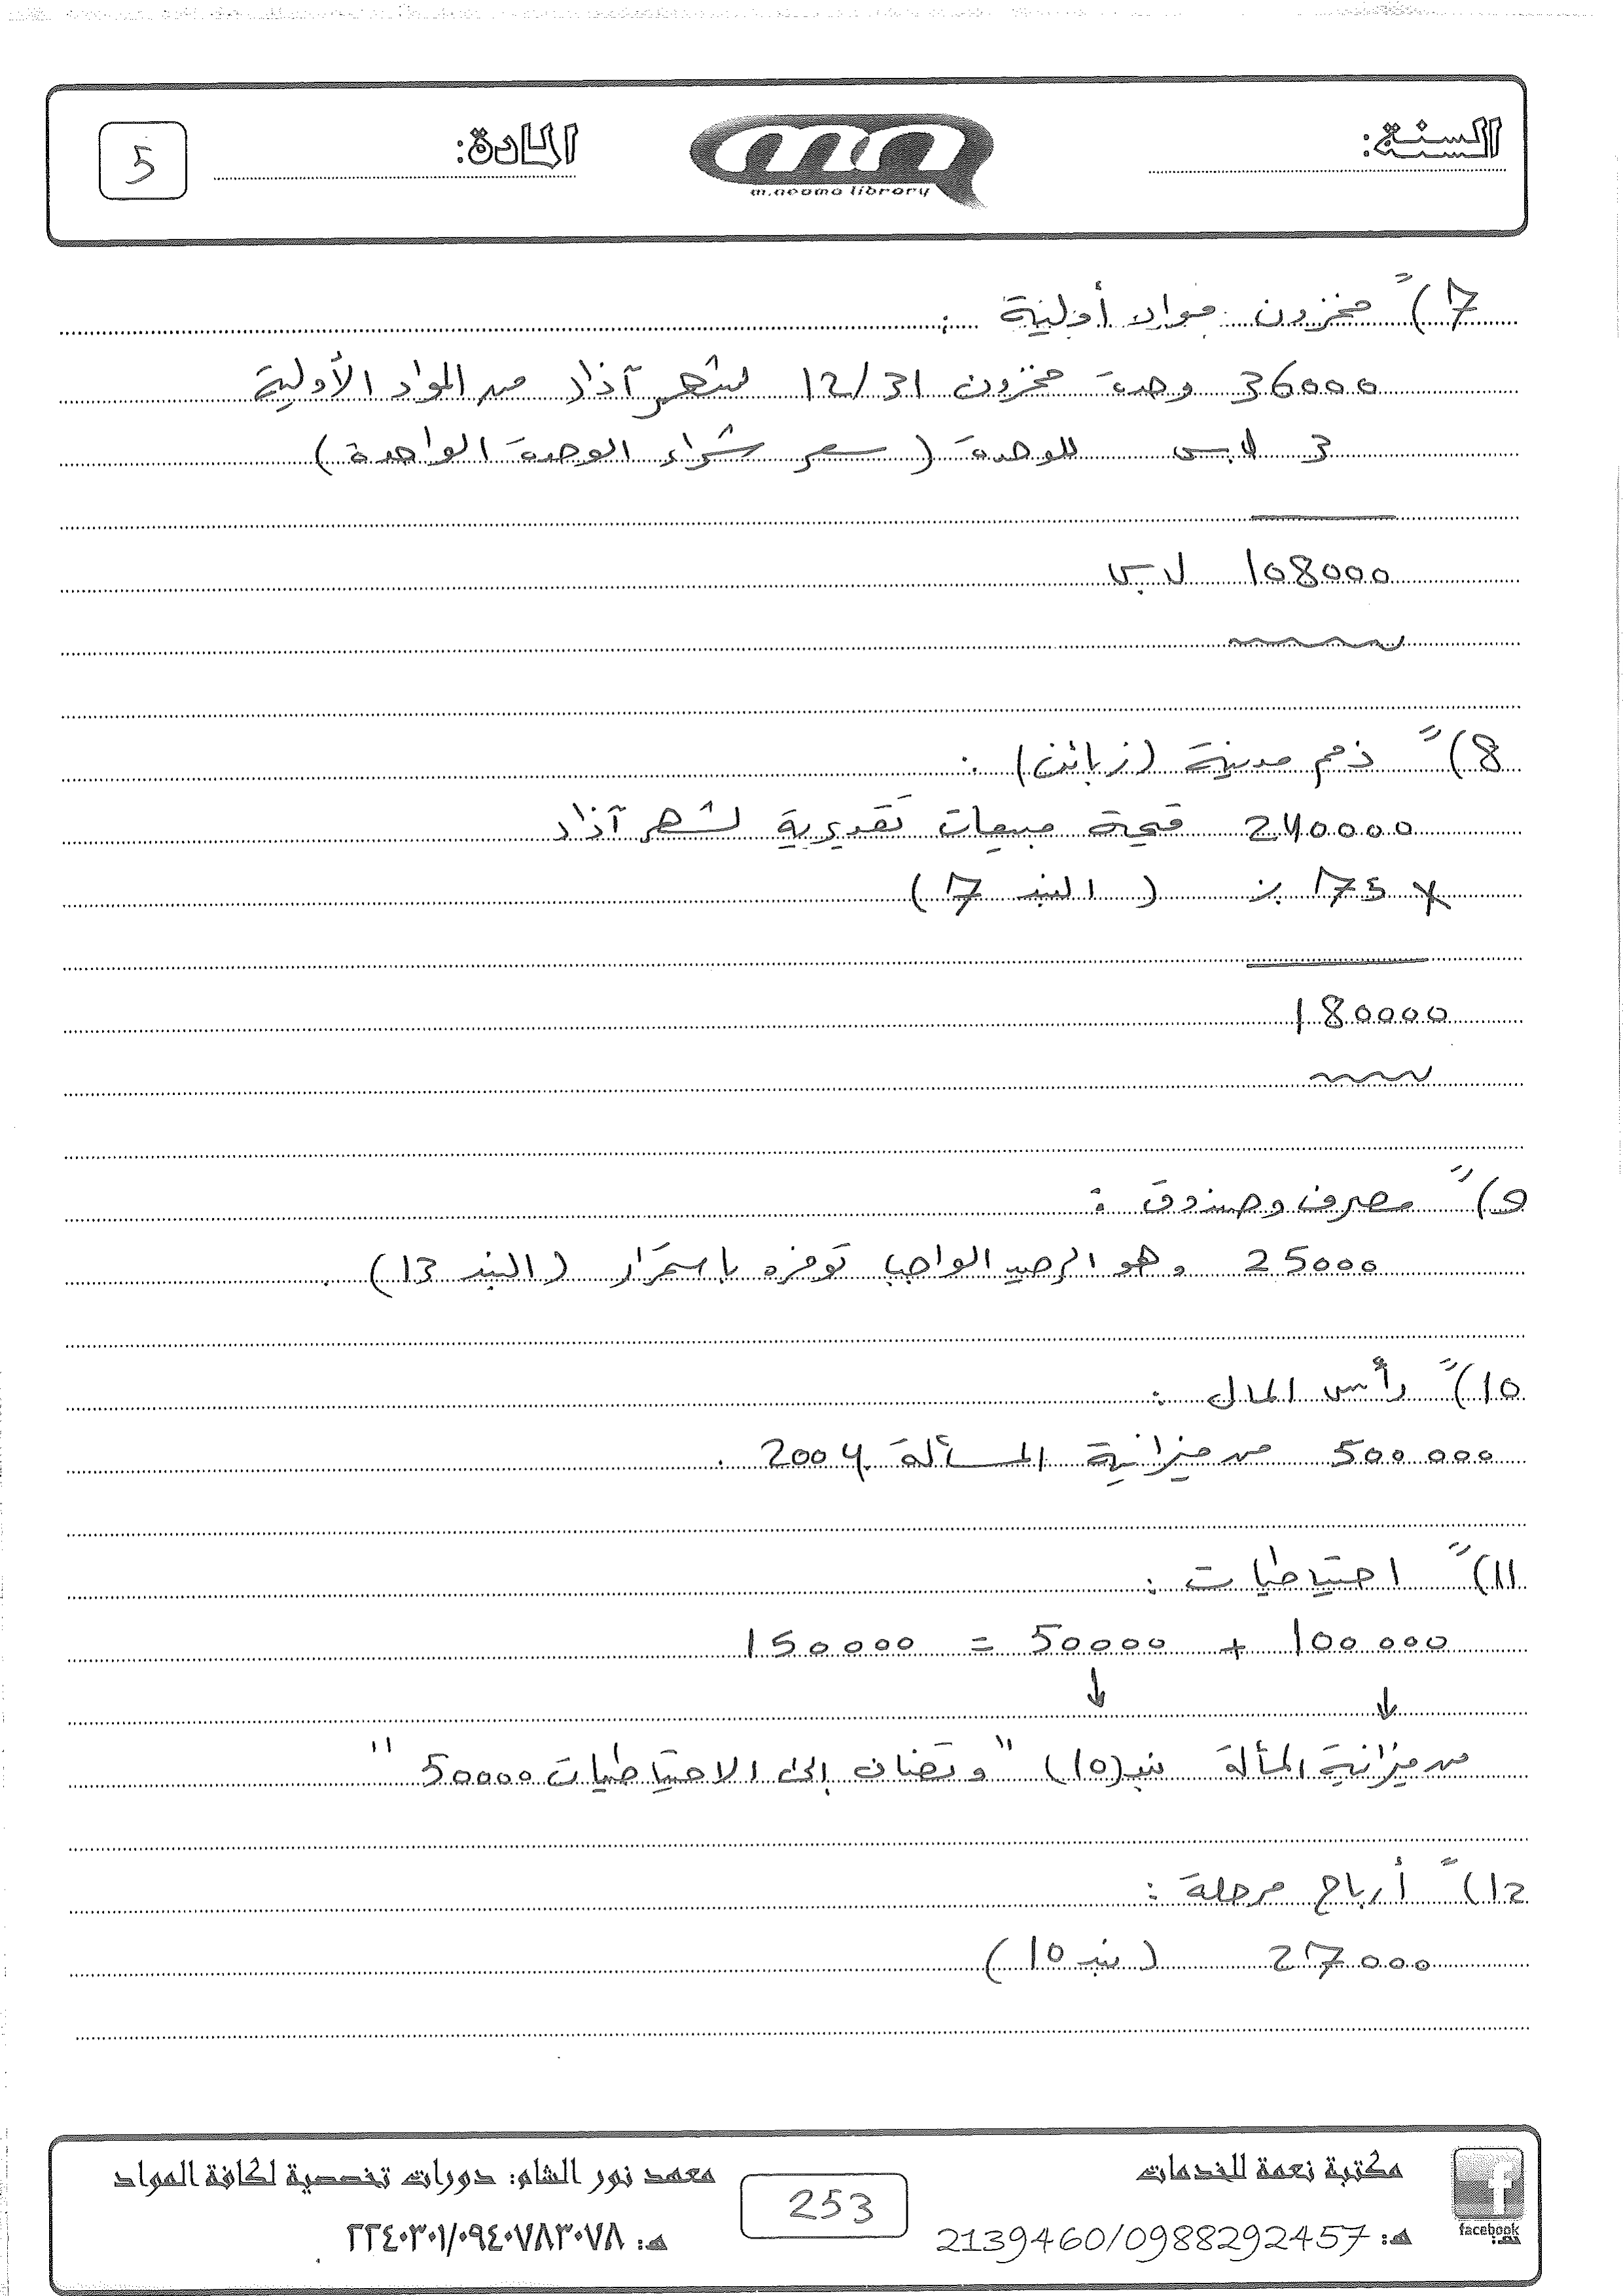 السنة:
m.neama library
المادة:
5
7) ً مخزون مواد أولية :
36000 وحدة مخزون 12/31 لشهر آذار من المواد الأولية
3 ل.س للوحدة ( سعر شراء الوحدة الواحدة )
108000 ل.س
8) ً ذمم مدينة (زبائن) :
240000 قيمة مبيعات تقديرية لشهر آذار
x 75 % ( البند 7 )
180000
9) ً مصرف وصندوق :
25000 وهو الرصيد الواجب توفره باستمرار ( البند 13 ) .
10) ً رأس المال :
500 000 من ميزانية المسألة 2004 .
11) ً احتياطيات :
100 000 + 50000 = 150000
↓ ↓
من ميزانية المسألة بند (10) " وتضاف إلى الاحتياطيات 50000 "
12) ً أرباح مرحلة :
27000 ( بند 10 )
مكتبة نعمة للخدمات
هـ: 2139460/0988292457
facebook
253
معهد نور الشام: دورات تخصصية لكافة المواد
هـ: ٢٢٤٠٣٠١/٠٩٤٠٧٨٣٠٧٨